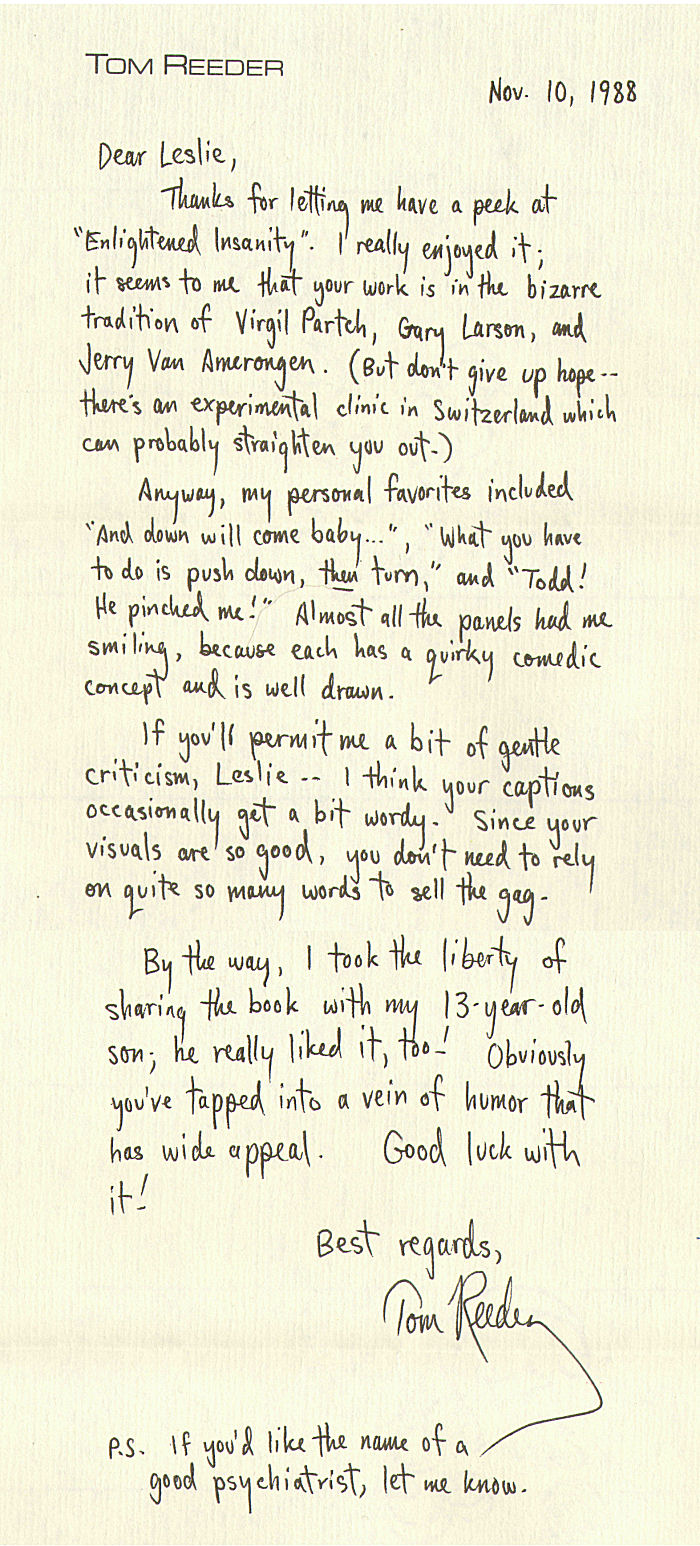 TOM REEDER
Nov. 10, 1988
Dear Leslie,
Thanks for letting me have a peek at
"Enlightened Insanity". I really enjoyed it;
it seems to me that your work is in the bizarre
tradition of Virgil Partch, Gary Larson, and
Jerry Van Amerongen. (But don't give up hope--
there's an experimental clinic in Switzerland which
can probably straighten you out.)
Anyway, my personal favorites included
"And down will come baby...", "What you have
to do is push down, then turn," and "Todd!
He pinched me!" Almost all the panels had me
smiling, because each has a quirky comedic
concept and is well drawn.
If you'll permit me a bit of gentle
criticism, Leslie -- I think your captions
occasionally get a bit wordy. Since your
visuals are so good, you don't need to rely
on quite so many words to sell the gag.
By the way, I took the liberty of
sharing the book with my 13-year-old
son; he really liked it, too! Obviously
you've tapped into a vein of humor that
has wide appeal. Good luck with
it!
Best regards,
Tom Reeder
P.S. If you'd like the name of a
good psychiatrist, let me know.